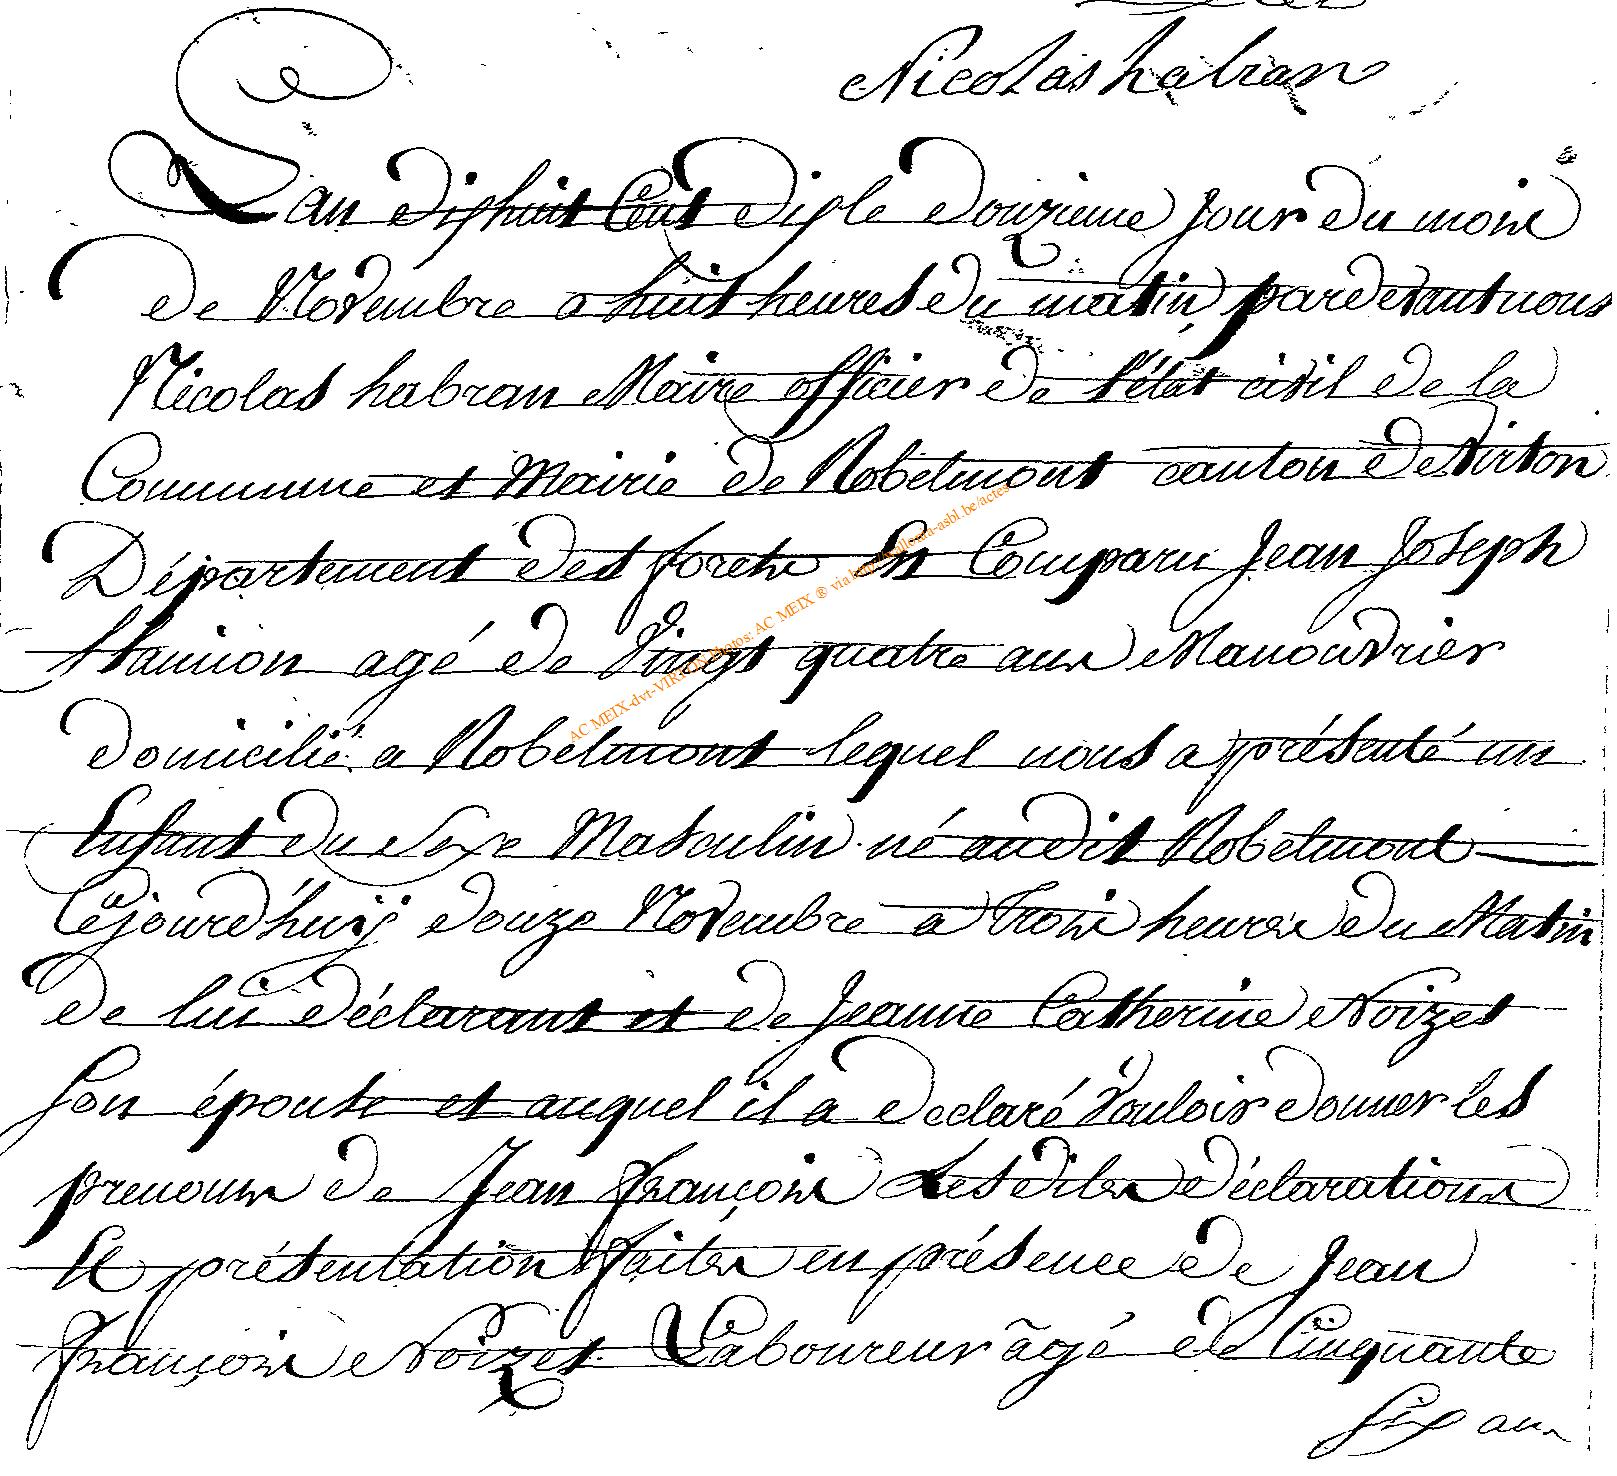 Nicolas habran
L'an dixhuit Cent dix le douzieme Jour du mois
de Novembre a huit heures du matin, pardevant nous
Nicolas habran Maire officier de l'état civil de la
Commune et Mairie de Robelmont canton de Virton
Département des forets En Comparu Jean Joseph
agé de Vingt quatre ans Manouvrier
domicilié a Robelmont lequel nous a présenté un
Enfant du Sexe Masculin né audit Robelmont
Cejourd'huij douze Novembre a Trois heures du Matin
de lui déclarant et de Jeanne Catherine Noizet
Son épouse et auquel il a declaré Vouloir donner les
prenoms de Jean François Lesdites déclarations
Et présentation faites en présence de Jean
François Noizet Laboureur âgé de Cinquante
Six ans
AC MEIX-dvt-VIRTON photos: AC MEIX ® via